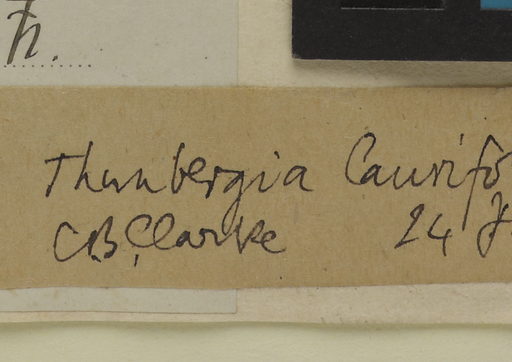 Th.
Thunbergia laurifo
C.B. Clarke 24 J